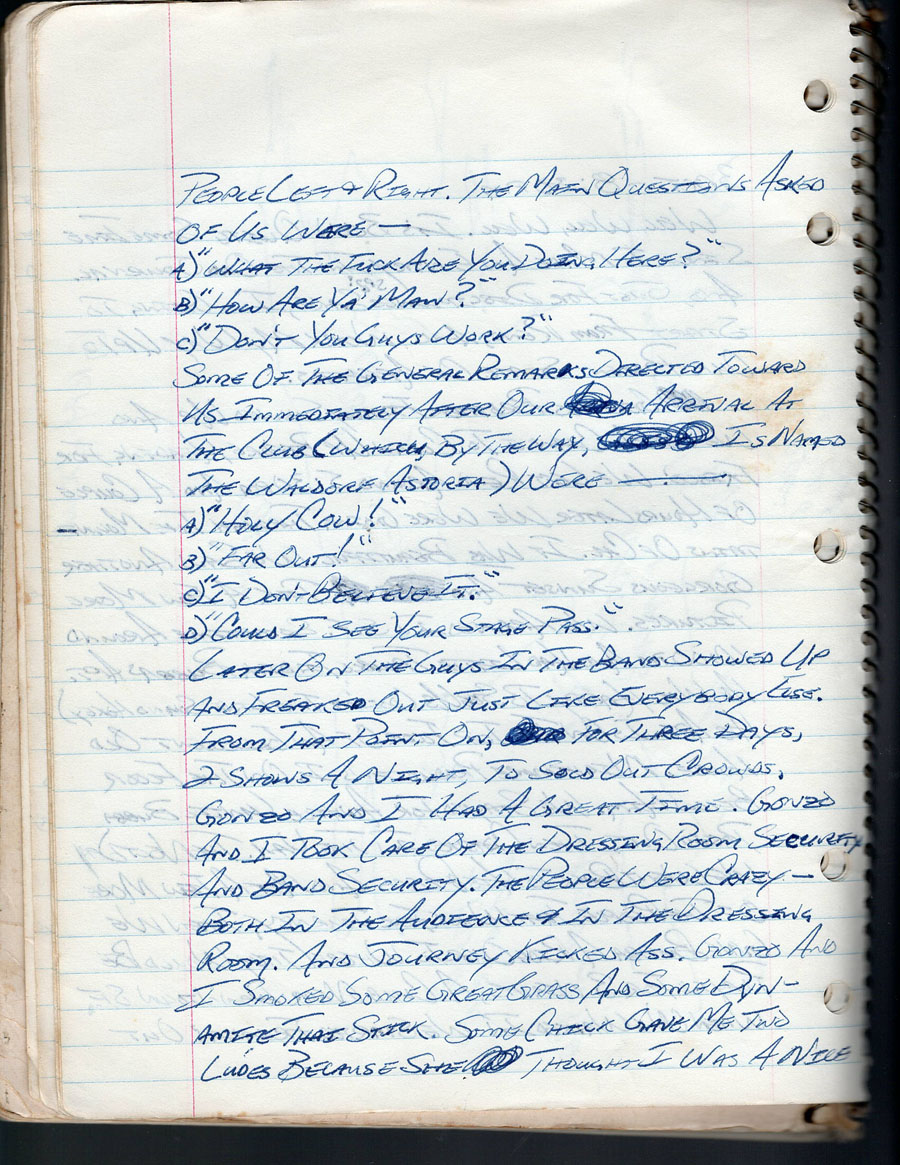 PEOPLE LEFT & RIGHT. THE MAIN QUESTIONS ASKED
OF US WERE —
A) "WHAT THE FUCK ARE YOU DOING HERE?"
B) "HOW ARE YA' MAN?"
C) "DON'T YOU GUYS WORK?"
SOME OF THE GENERAL REMARKS DIRECTED TOWARD
US IMMEDIATELY AFTER OUR ARRIVAL AT
THE CLUB (WHICH, BY THE WAY, IS NAMED
THE WALDORF ASTORIA) WERE —
A) "HOLY COW!"
B) "FAR OUT!"
C) "I DON'T BELIEVE IT."
D) "COULD I SEE YOUR STAGE PASS."
LATER ON THE GUYS IN THE BAND SHOWED UP
AND FREAKED OUT JUST LIKE EVERYBODY ELSE.
FROM THAT POINT ON, FOR THREE DAYS,
2 SHOWS A NIGHT, TO SOLD OUT CROWDS,
GONZO AND I HAD A GREAT TIME. GONZO
AND I TOOK CARE OF THE DRESSING ROOM SECURITY
AND BAND SECURITY. THE PEOPLE WERE CRAZY —
BOTH IN THE AUDIENCE & IN THE DRESSING
ROOM. AND JOURNEY KICKED ASS. GONZO AND
I SMOKED SOME GREAT GRASS AND SOME DYN-
AMITE THAI STICK. SOME CHICK GAVE ME TWO
LUDES BECAUSE SHE THOUGHT I WAS A NICE